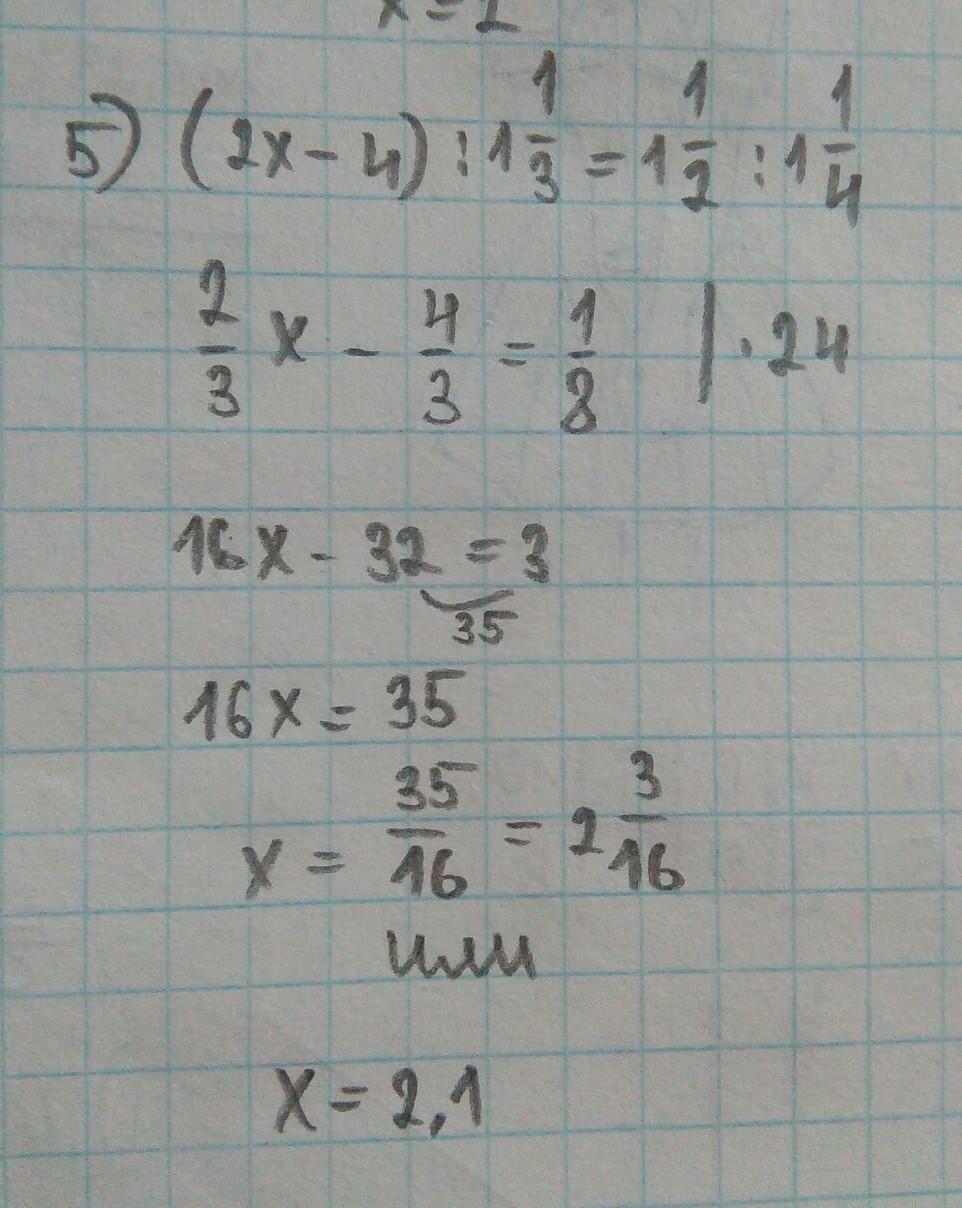 x = 2
5) (2x - 4) : 1 1/3 = 1 1/2 : 1 1/4
2/3 x - 4/3 = 1/8 | · 24
16x - 32 = 3
35
16x = 35
x = 35/16 = 2 3/16
или
x = 2,1